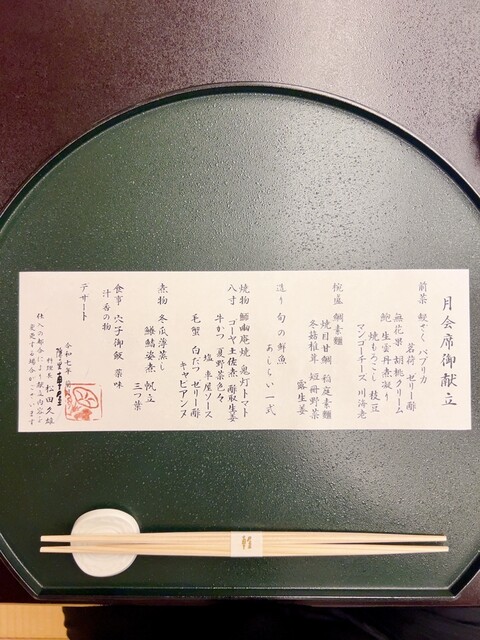 月会席御献立
前菜 鰻ざく パプリカ
茗荷 ゼリー酢
無花果 胡桃クリーム
鮑 生雲丹煮凝り
焼もろこし 枝豆
マンゴーチーズ 川海老
椀盛 鯛素麺
焼目甘鯛 稲庭素麺
冬菇椎茸 短冊野菜
露生姜
造り 旬の鮮魚
あしらい一式
焼物 鰤幽庵焼 鬼灯トマト
八寸 ゴーヤ土佐煮 酢取生姜
牛かつ 夏野菜色々
塩 車屋ソース
毛蟹 白だつ ゼリー酢
キャビアンヌ
煮物 冬瓜薄葛し
鱶鰭姿煮 帆立
三つ葉
食事 穴子御飯 薬味
汁 香の物
デザート
令和 年
料理長 松田久雄
仕入の都合により献立内容が
変更する場合がございます